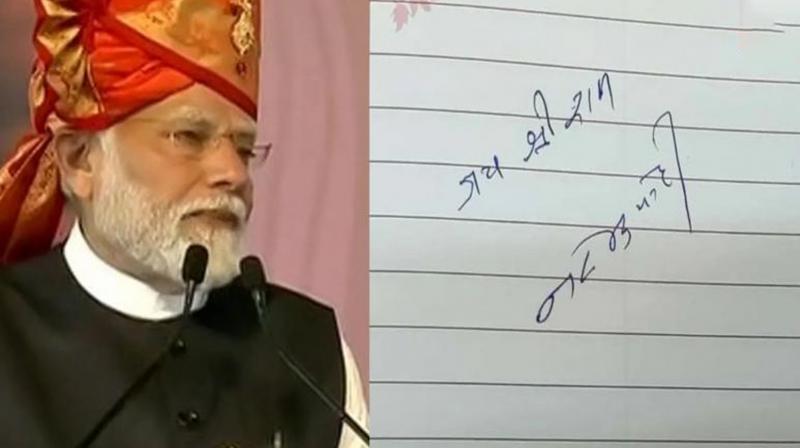 जय श्री राम
नरेन्द्र मोदी